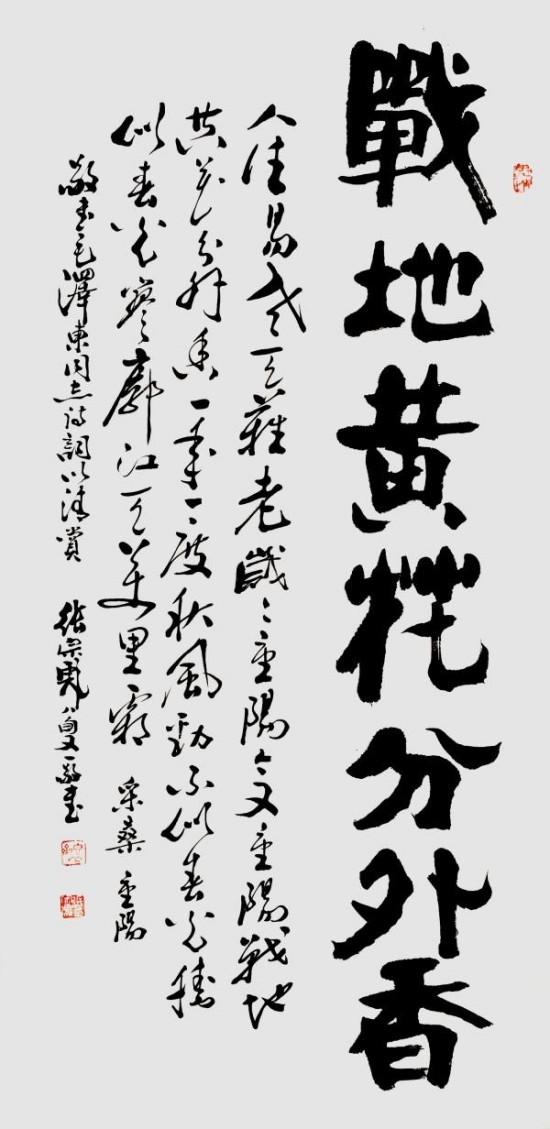 戰地黃花分外香
人生易老天難老歲々重陽今又重陽戰地
黃花分外香一年一度秋風勁不似春光勝
似春光寥廓江天萬里霜 采桑 重陽
敬書毛澤東同志詩詞以清賞 張宗 八旬叟敬書